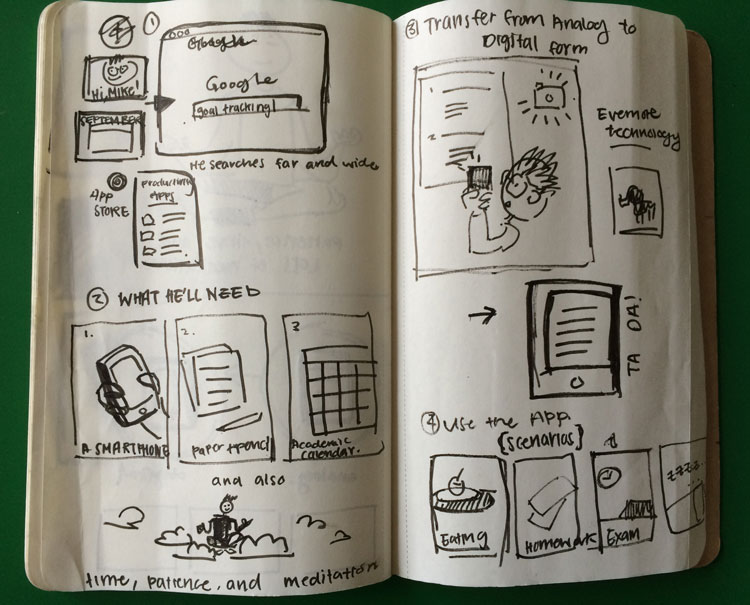 ①
Hi, MIKE!
SEPTEMBER
Google
Google
goal tracking
He searches far and wide
App
STORE
productivity
Apps
② WHAT HE'LL NEED
1.
A SMARTPHONE
2.
paper + pencil
3
Academic
calendar.
and also
time, patience, and meditation
③ Transfer from Analog to
Digital form
Evernote
technology
→
TA DA!
④ Use the App
[scenarios]
Eating
Homework
Exam
zzzz...